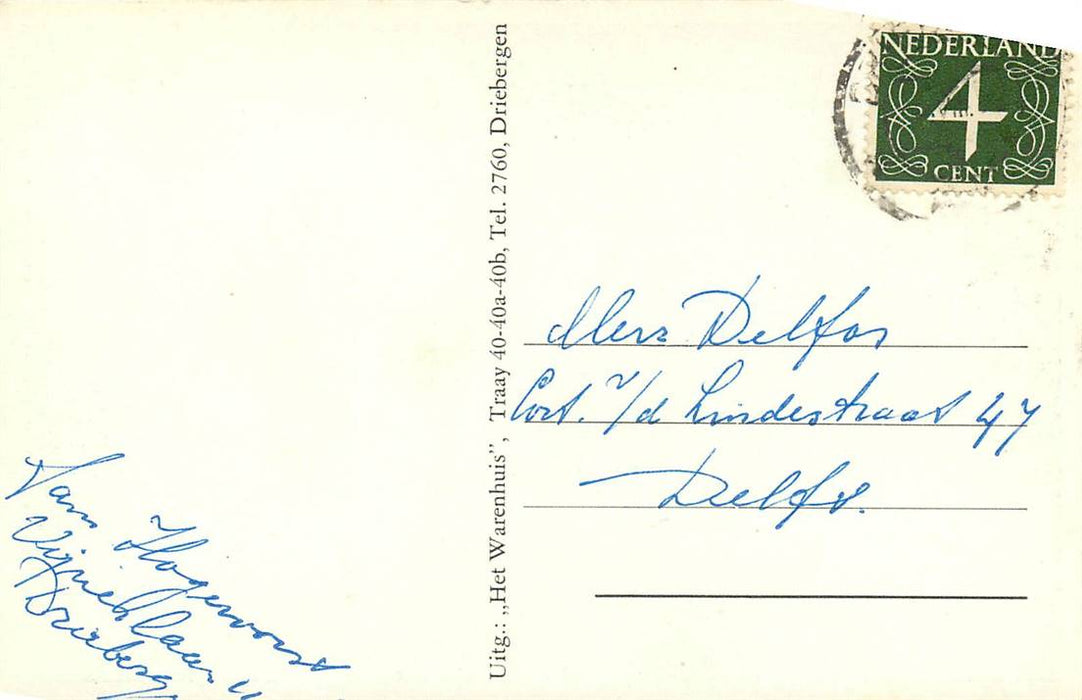 NEDERLAND
4
CENT
Uitg.: „Het Warenhuis”, Traay 40-40a-40b, Tel. 2760, Driebergen
Mevr Delfos
Cort. v/d Lindestraat 47
Delft.
Fam
Hogervorst
Driebergen